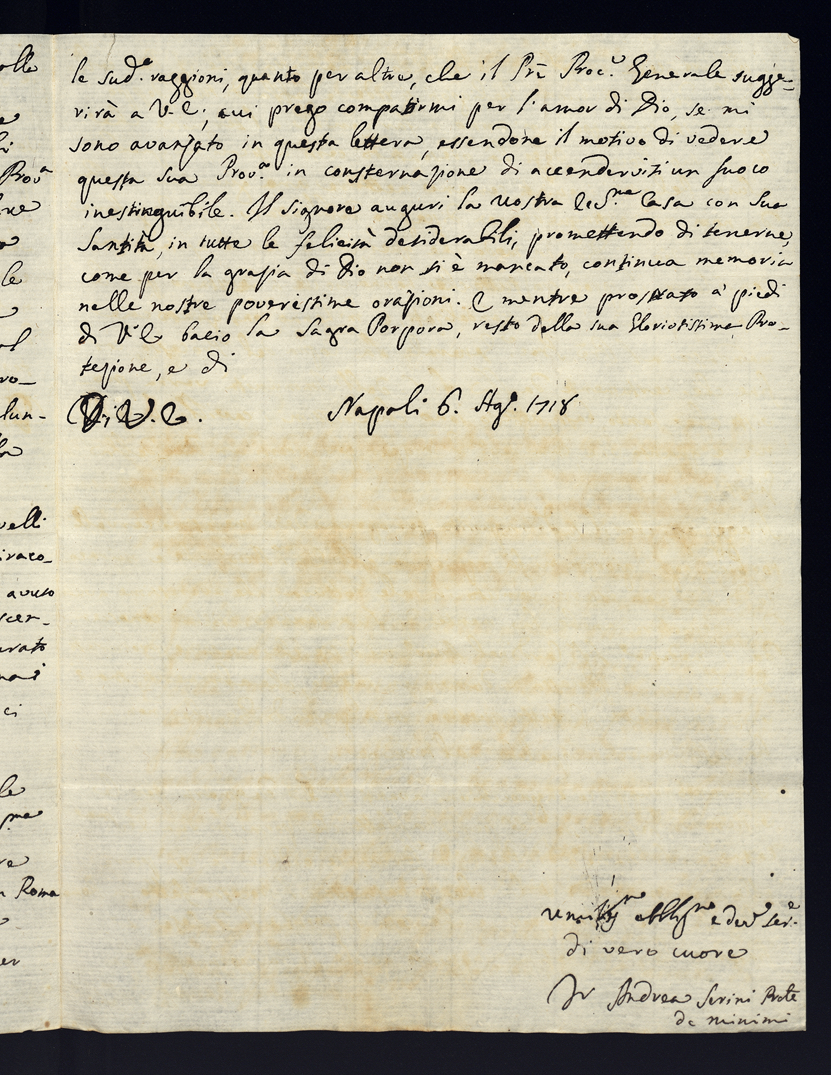 le sud.e raggioni, quanto per altre, che il Prē Proc.r Generale sugge-
rirà a V.E; cui prego compatirmi per l'amor di Dio, se mi
sono avanzato in questa lettera, essendone il motivo di vedere
questa sua Prov.a in consternazione di accendervisi un fuoco
inestinguibile. Il Signore auguri la vostra Ec.ma Casa con Sua
Santità, in tutte le felicità desiderabili, promettendo di tenerne,
come per la grazia di Dio non si è mancato, continua memoria
nelle nostre poverissime orazioni. E mentre prostrato a' piedi
di V.E. bacio la Sagra Porpora, resto della sua Gloriosissima Pro-
tezione, e di
Di V.E. Napoli 6. Ag.o 1718
olle
e
Prov.a
ne
le
al
ro-
lun-
la
velli
iraco-
avuto
scer-
urato
mai
ci
le
re
Roma
er
umiliss.mo obblig.mo e dev.o ser.e
di vero cuore
Fr Andrea Serini Prole
de minimi